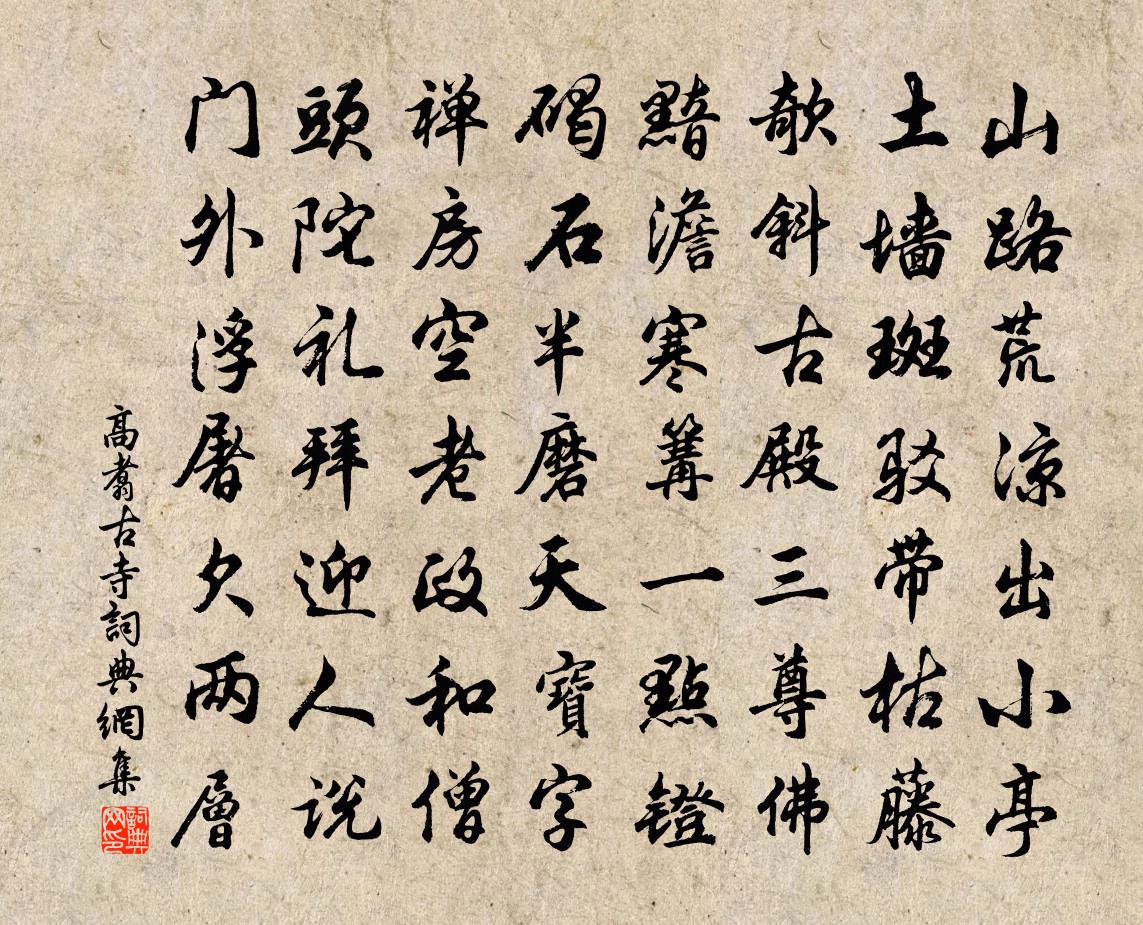 山路荒凉出小亭
土墙斑驳带枯藤
欹斜古殿三尊佛
黯澹寒篝一點镫
碣石半磨天寶字
禅房空老政和僧
頭陀礼拜迎人说
门外浮屠欠两層
高翥古寺詞典網集
詞典
网印